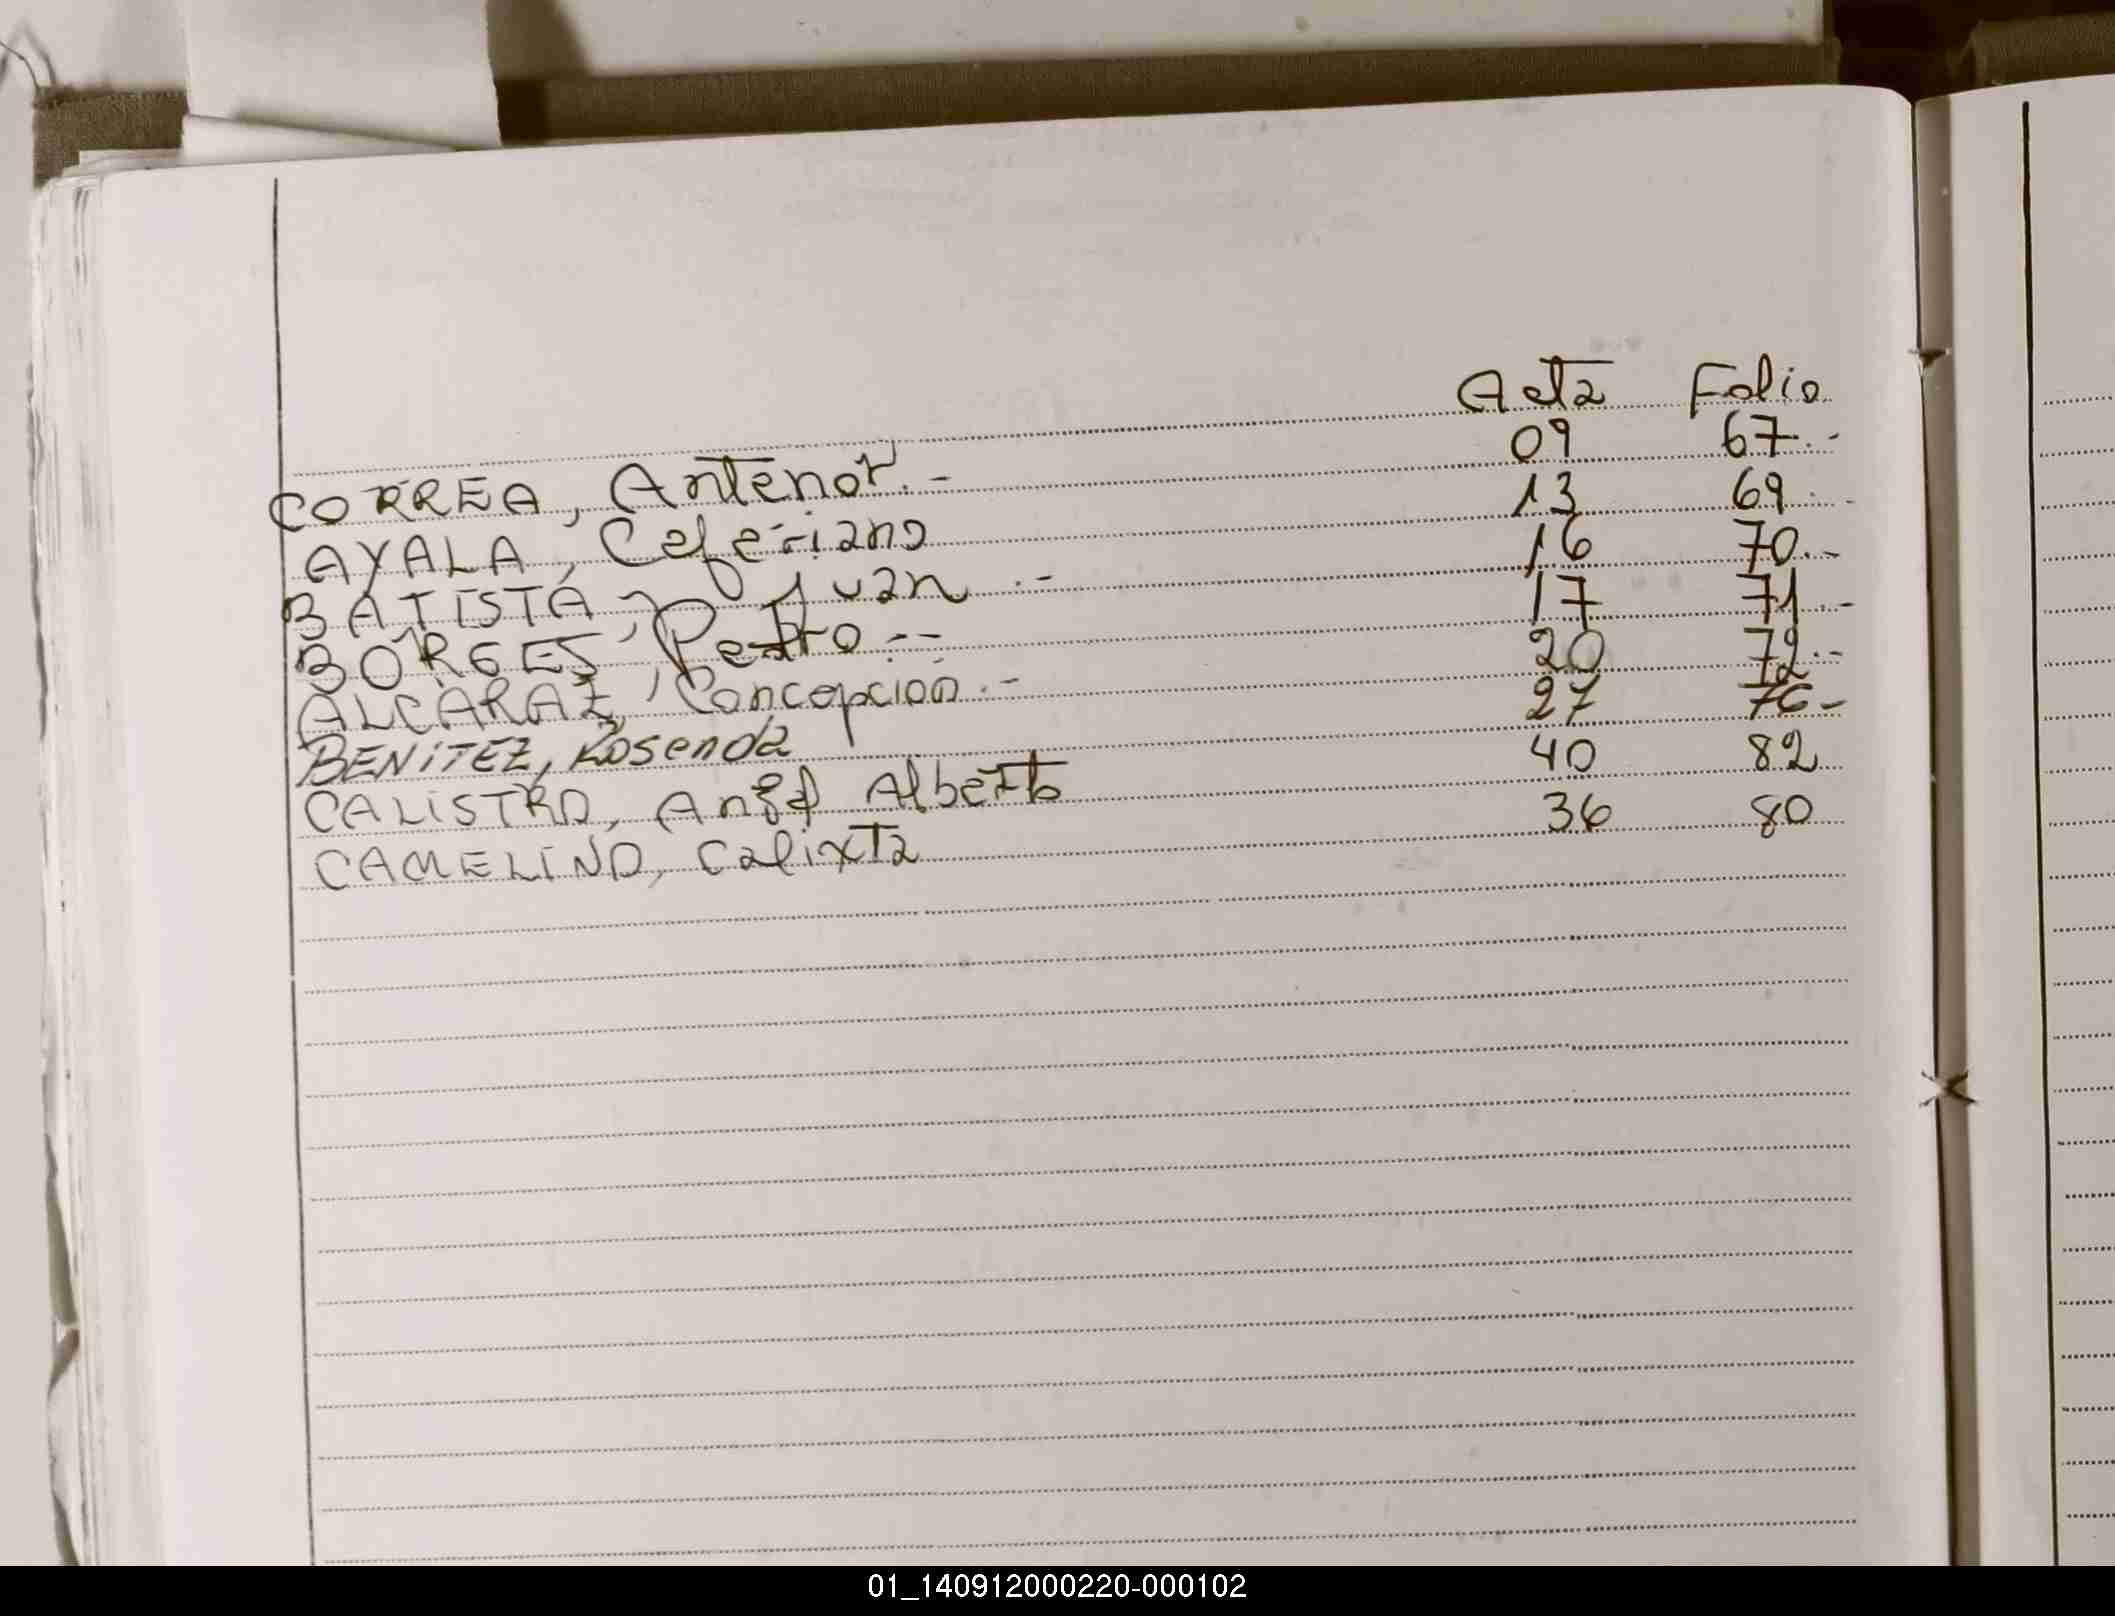 Acta Folio
CORREA, Antenor.- 09 67.-
AYALA, Ceferiano 13 69.-
BATISTA, Juan.- 16 70.-
BORGES, Pedro.-- 17 71.-
ALCARAZ, Concepcion.- 20 72.-
BENITEZ, Rosenda 27 76-
CALISTRO, Angel Alberto 40 82
CAMELINO, Calixta 36 80
01_140912000220-000102